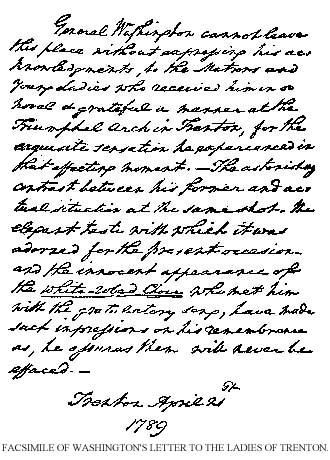 General Washington cannot leave
this place without expressing his ac-
knowledgments, to the Matrons and
Young Ladies who received him in so
novel & grateful a manner at the
Triumphal Arch in Trenton, for the
exquisite sensation he experienced in
that affecting moment. — The astonishing
contrast between his former and ac-
tual situation at the same spot. The
elegant taste with which it was
adorned for the present occasion —
and the innocent appearance of
the white-robed Choir who met him
with the gratulatory song, have made
such impressions on his remembrance
as, he assures them will never be
effaced. —
Trenton April 21st
1789
FACSIMILE OF WASHINGTON'S LETTER TO THE LADIES OF TRENTON.